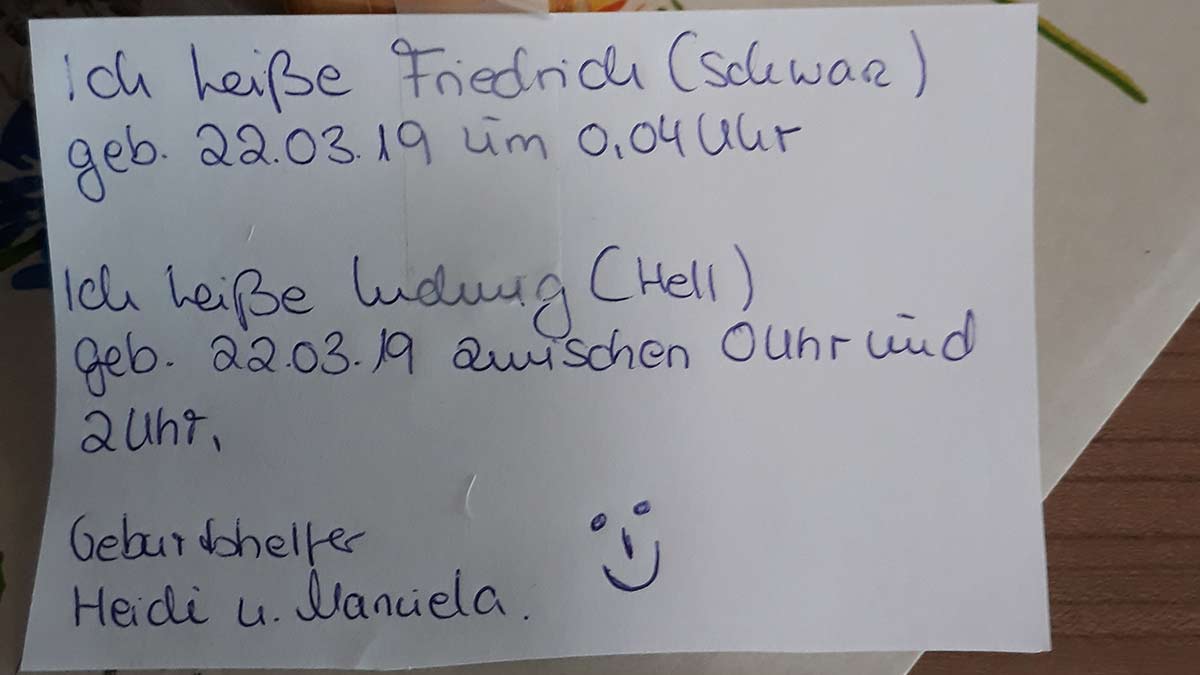 Ich heiße Friedrich (Schwarz)
geb. 22.03.19 um 0.04 Uhr
Ich heiße Ludwig (Hell)
geb. 22.03.19 zwischen 0 Uhr und
2 Uhr.
Geburdshelfer
Heidi u. Manuela.